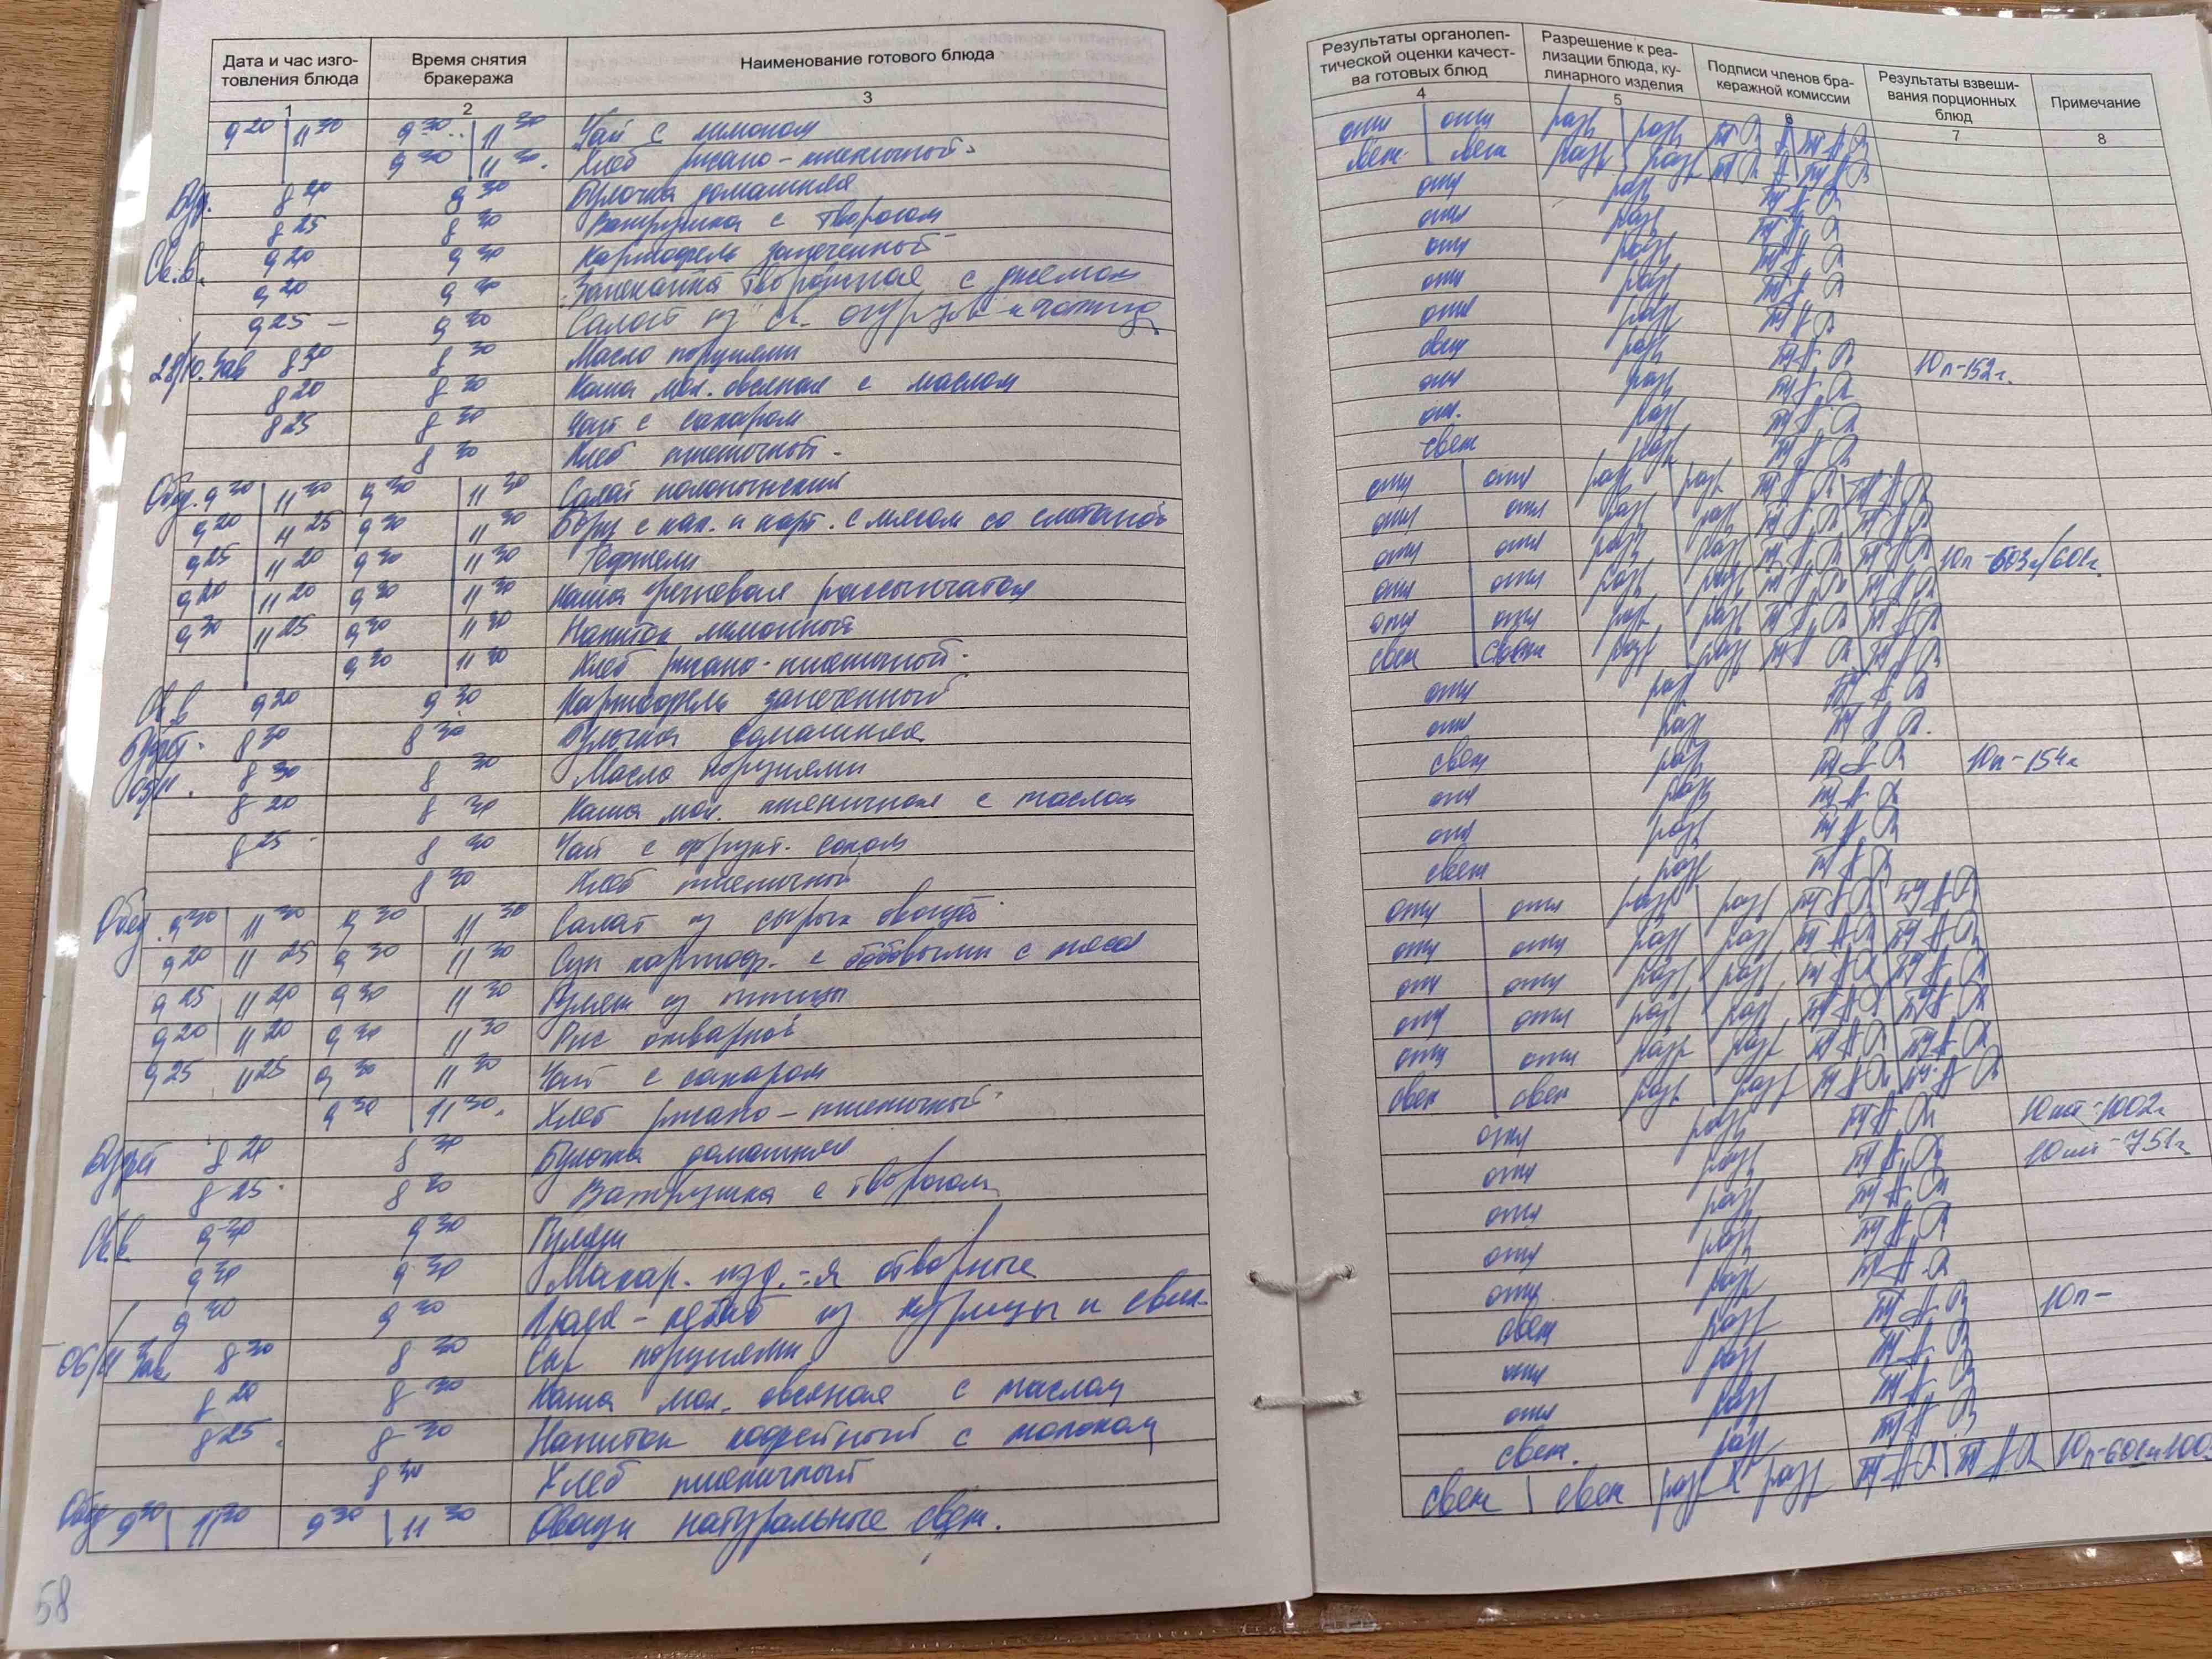 Дата и час изго-товления блюда | Время снятия бракеража | Наименование готового блюда
1 | 2 | 3
9 20 | 11 30 | 9 30 | 11 30 | Чай с лимоном
9 30 | 11 30 | Хлеб ржано-пшеничный
Буф. 8 20 | 9 30 | Булочка домашняя
8 25 | 8 30 | Ватрушка с творогом
Св.в. 9 20 | 9 30 | Картофель запеченный
9 20 | 9 30 | Запеканка творожная с джемом
9 25 | 9 30 | Салат из св. огурцов и
28/10. Зав 8 30 | 8 30 | Масло порциями
8 20 | 8 30 | Каша мол. овсяная с маслом
8 25 | 8 30 | Чай с сахаром
8 30 | Хлеб пшеничный
Обед. 9 30 | 11 30 | 9 30 | 11 30 | Салат
9 20 | 11 25 | 9 30 | 11 30 | Борщ с кап. и карт. с мясом со сметаной
9 25 | 11 20 | 9 30 | 11 30 | Тефтели
9 20 | 11 20 | 9 30 | 11 30 | Каша гречневая рассыпчатая
9 30 | 11 25 | 9 30 | 11 30 | Напиток лимонный
9 30 | 11 30 | Хлеб ржано-пшеничный
Св.в 9 20 | 9 30 | Картофель запеченный
Буфет. 8 30 | 8 30 | Булочка домашняя
05/11. 8 30 | 8 30 | Масло порциями
8 20 | 8 30 | Каша мол. пшеничная с маслом
8 25 | 8 30 | Чай с фрукт. соком
8 30 | Хлеб пшеничный
Обед. 9 30 | 11 30 | 9 30 | 11 30 | Салат из сырых овощей
9 20 | 11 25 | 9 30 | 11 30 | Суп картоф. с бобовыми с мясом
9 25 | 11 20 | 9 30 | 11 30 | Гуляш из птицы
9 20 | 11 20 | 9 30 | 11 30 | Рис отварной
9 25 | 11 25 | 9 30 | 11 30 | Чай с сахаром
9 30 | 11 30 | Хлеб ржано-пшеничный
Буфет 8 20 | 8 30 | Булочка домашняя
8 25 | 8 30 | Ватрушка с творогом
Св.в 9 30 | 9 30 | Гуляш
9 30 | 9 30 | Макар. изд.-я отварные
9 30 | 9 30 | Люля-кебаб из курицы и свин.
06/11 Зав 8 30 | 8 30 | Сыр порциями
8 20 | 8 30 | Каша мол. овсяная с маслом
8 25 | 8 30 | Напиток кофейный с молоком
8 30 | Хлеб пшеничный
Обед 9 30 | 11 30 | 9 30 | 11 30 | Овощи натуральные свеж.
58
Результаты органолеп-тической оценки качест-ва готовых блюд | Разрешение к реа-лизации блюда, ку-линарного изделия | Подписи членов бра-керажной комиссии | Результаты взвеши-вания порционных блюд | Примечание
4 | 5 | 6 | 7 | 8
отл | отл | разр | разр
свеж | свеж | разр | разр
отл | разр
отл | разр
отл | разр
отл | разр
отл | разр
свеж | разр | 10п-152г.
отл | разр
отл. | разр
свеж | разр
отл | отл | разр | разр
отл | отл | разр | разр
отл | отл | разр | разр | 10п-603г/601г.
отл | отл | разр | разр
отл | отл | разр | разр
свеж | свеж | разр | разр
отл | разр
отл | разр
свеж | разр | 10п-154г
отл | разр
отл | разр
свеж | разр
отл | отл | разр | разр
отл | отл | разр | разр
отл | отл | разр | разр
отл | отл | разр | разр
отл | отл | разр | разр
свеж | свеж | разр | разр
отл | разр | 10шт-1002г
отл | разр | 10шт-751г
отл | разр
отл | разр
отл | разр
свеж | разр | 10п-
отл | разр
отл | разр
свеж. | разр
свеж | свеж | разр | разр